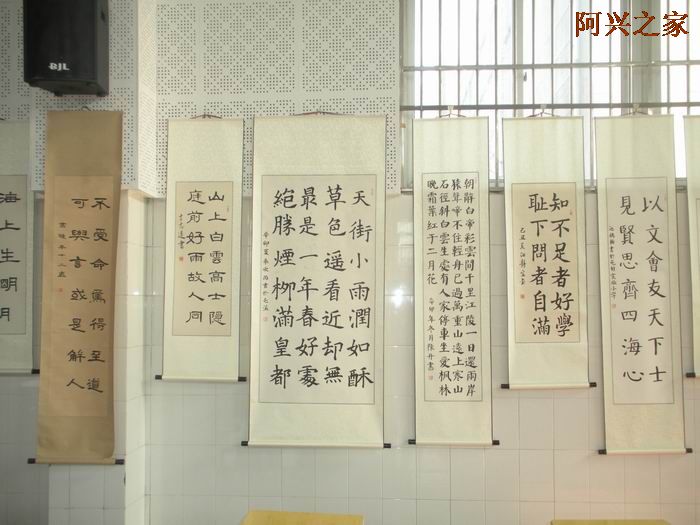 阿兴之家
BJL
海上生明月
不受命焉得至道
可與言或是解人
山上白雲高士隱
庭前好雨故人同
天街小雨潤如酥
草色遥看近却無
最是一年春好處
絕勝煙柳滿皇都
朝辭白帝彩雲間千里江陵一日還兩岸
猿聲啼不住輕舟已過萬重山遠上寒山
石徑斜白雲生處有人家停車坐愛楓林
晚霜葉紅于二月花
辛卯年冬月陳丹書
知不足者好學
耻下問者自滿
以文會友天下士
見賢思齊四海心